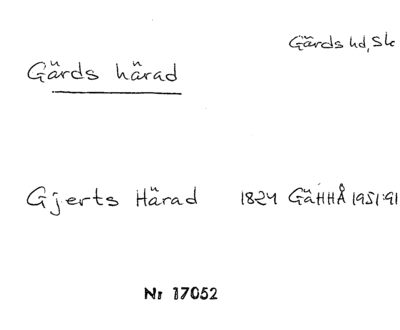 Gärds hd, Sk
Gärds härad
Gjerts Härad 1824 GäHHÅ 1951:91
Nr 17052